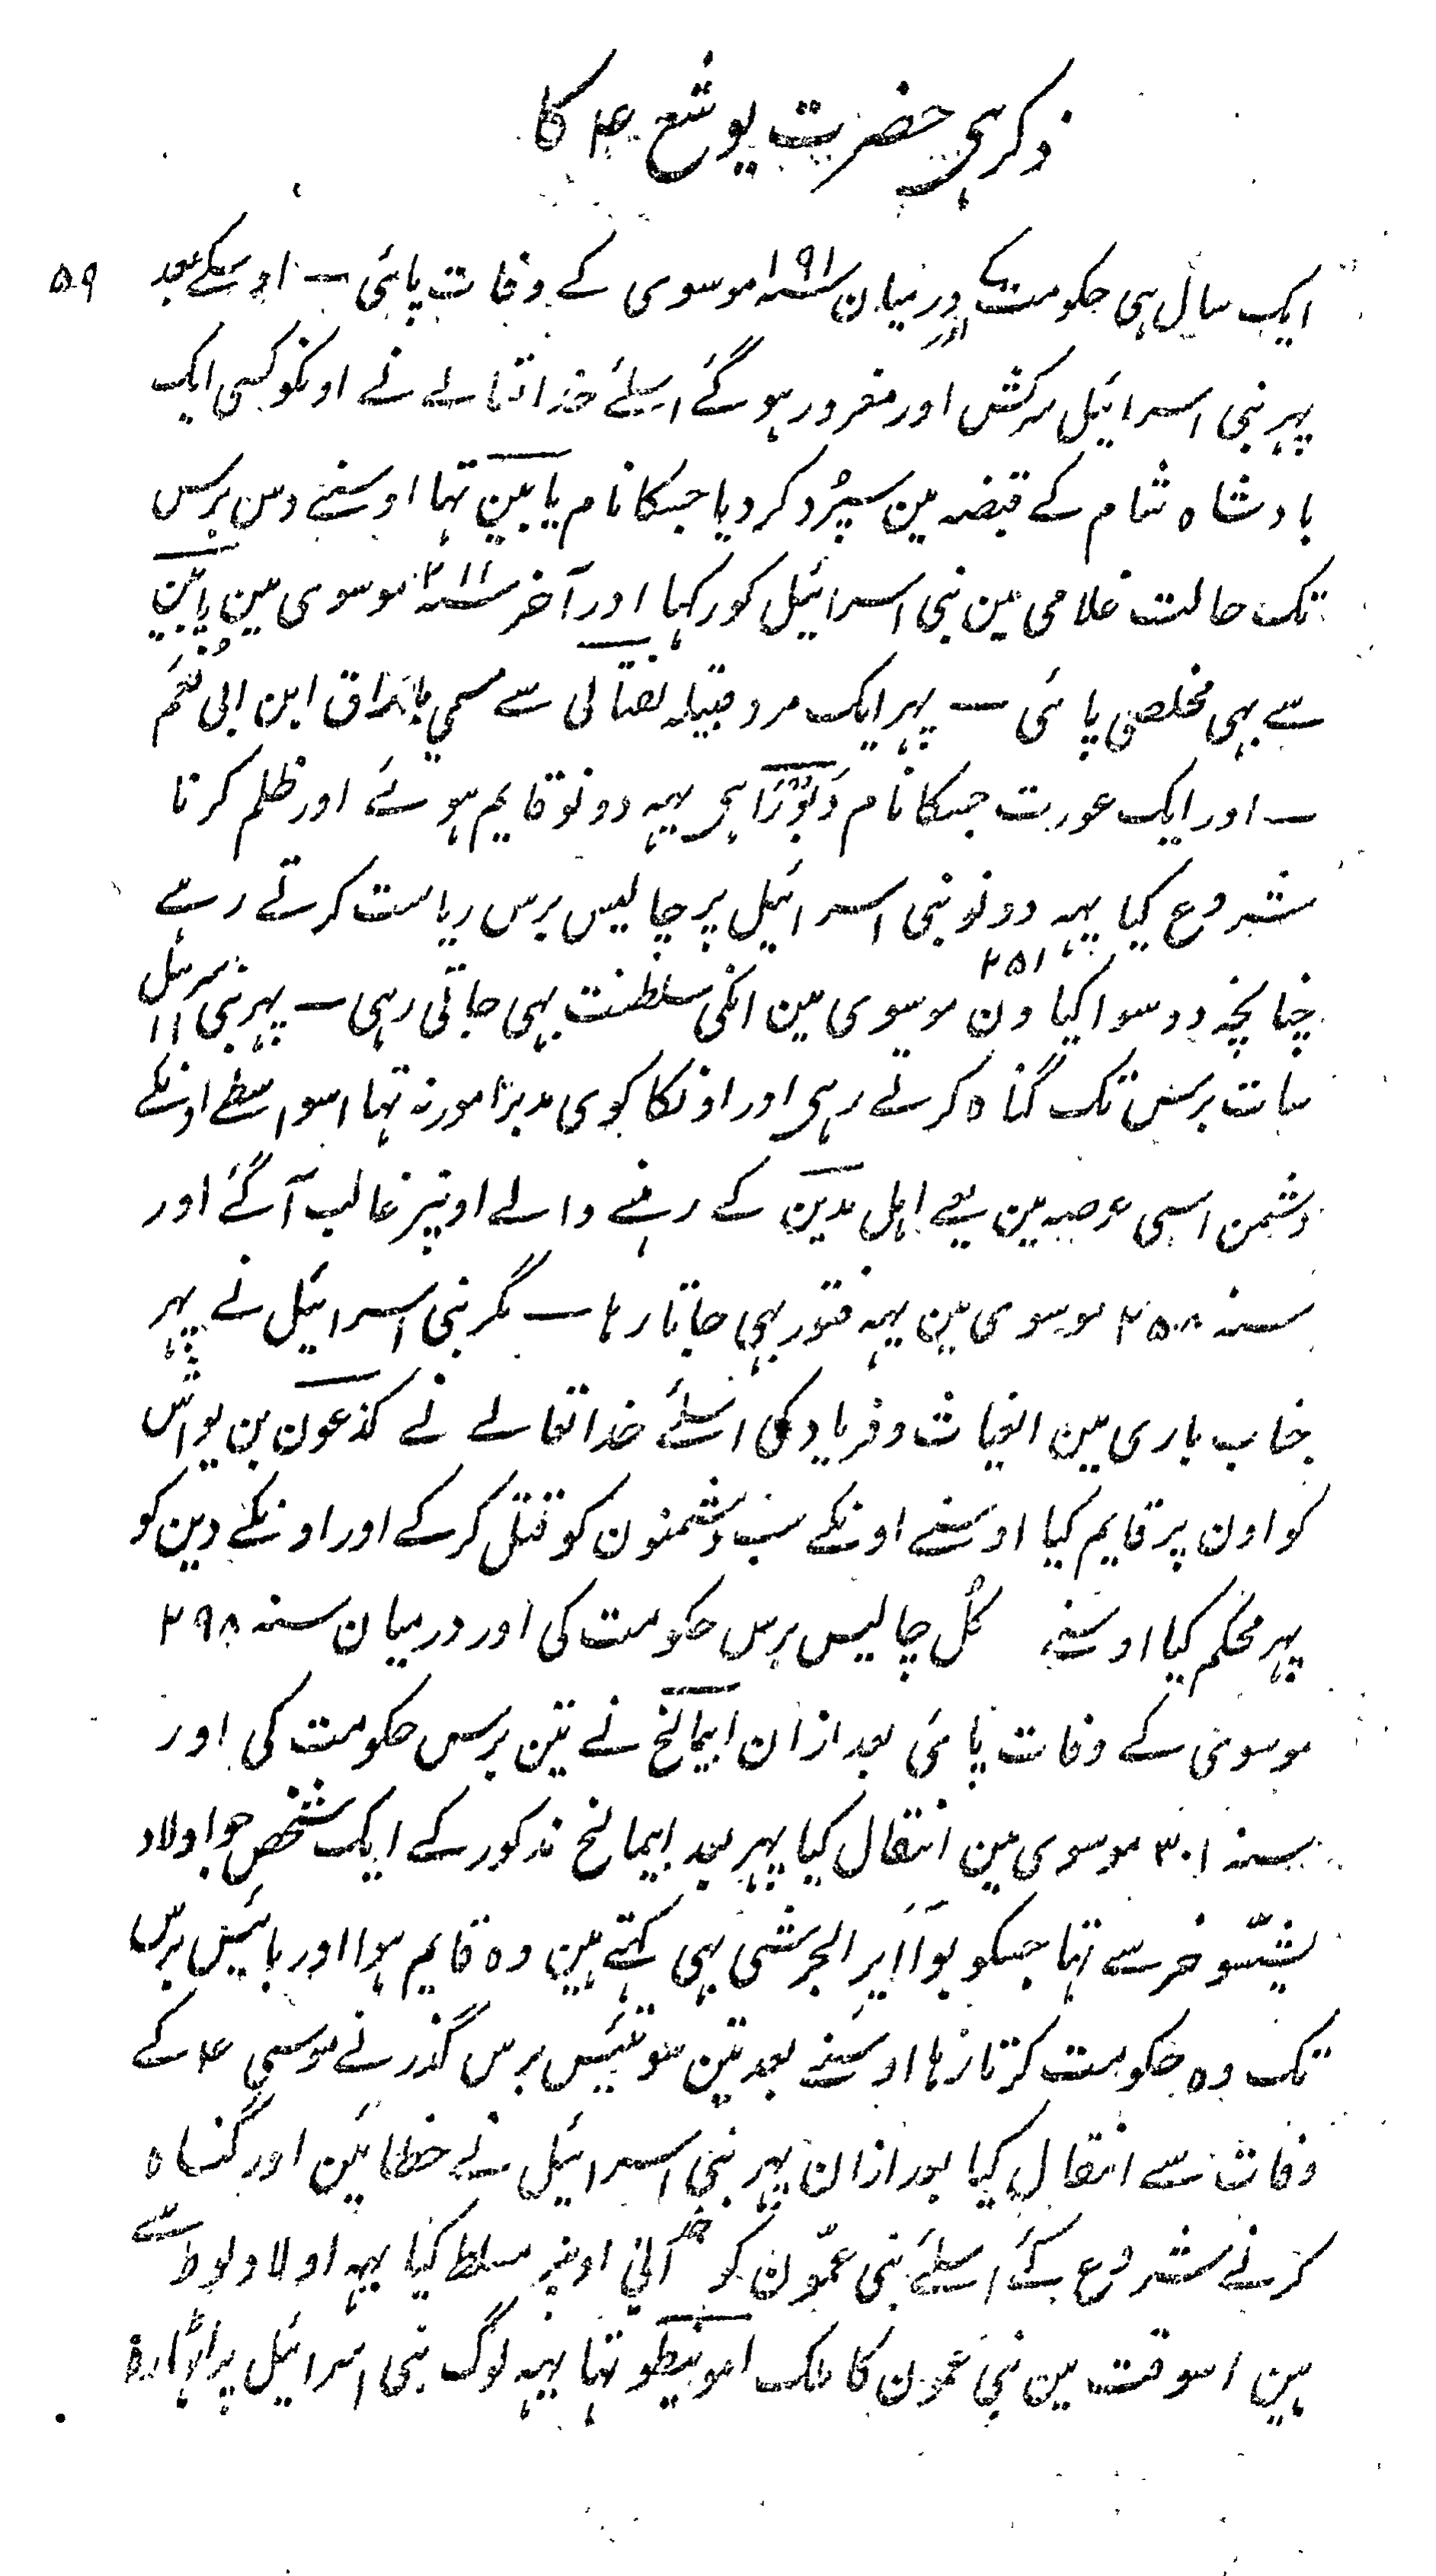 ذکر ہی حضرت یوشع ۴ کا
۵۹
ایک سال ہی حکومت کی اور درمیان سنہ ۱۹۱ موسوی کے وفات پائی — اوسکے بعد
پہر بنی اسرائیل سرکش اور مغرور ہو گئے اسلئے خدا تعالے نے اونکو کسی ایک
بادشاہ شام کے قبضہ مین سپرد کر دیا جسکا نام یابین تہا اوسنے دس برس
تک حالت غلامی مین بنی اسرائیل کو رکہا اور آخر سنہ ۲۱۱ موسوی مین یابین
سے بہی مخلصی پائی — پہر ایک مرد قبیلہ نفتالی سے مسمی باراق ابن ابی نعم
— اور ایک عورت جسکا نام دبورا ہی یہہ دونو قایم ہوئے اور ظلم کرنا
شروع کیا یہہ دونو بنی اسرائیل پر چالیس برس ریاست کرتے رہے
چنانچہ دو سو اکیاون ۲۵۱ موسوی مین انکی سلطنت بہی جاتی رہی — پہر بنی اسرائیل
سات برس تک گناہ کرتے رہی اور اونکا کوی مدبر امور نہ تہا اسواسطے اونکے
دشمن اسی عرصہ مین یعے اہل مدین کے رہنے والے اونپر غالب آ گئے اور
سنہ ۲۵۸ موسوی مین یہہ فتور بہی جاتا رہا — مگر بنی اسرائیل نے پہر
جناب باری مین الغیاث و فریاد کی اسلئے خدا تعالے نے کذعون بن یواش
کو اون پر قایم کیا اوسنے اونکے سب دشمنون کو قتل کر کے اور اونکے دین کو
پہر محکم کیا اوسنے کُل چالیس برس حکومت کی اور درمیان سنہ ۲۹۸
موسوی کے وفات پائی بعد ازان ابیمالخ نے تین برس حکومت کی اور
سنہ ۳۰۱ موسوی مین انتقال کیا پہر بعد ابیمالخ مذکور کے ایک شخص جو اولاد
یشسوخر سے تہا جسکو یوآایر الجرشی بہی کہتے ہین وہ قایم ہوا اور بائیس برس
تک وہ حکومت کرتا رہا اوسنے بعد تین سو تیئس برس گذرنے موسی ۴ کے
وفات سے انتقال کیا بعد ازان پہر بنی اسرائیل نے خطائین اور گناہ
کرنے شروع کئے اسلئے بنی عمّون کو خدا نے اونپر مسلط کیا یہہ اولاد لوط سے
ہین اسوقت مین بنی عمون کا ملک امونیطو تہا یہہ لوگ بنی اسرائیل پر اٹہارہ